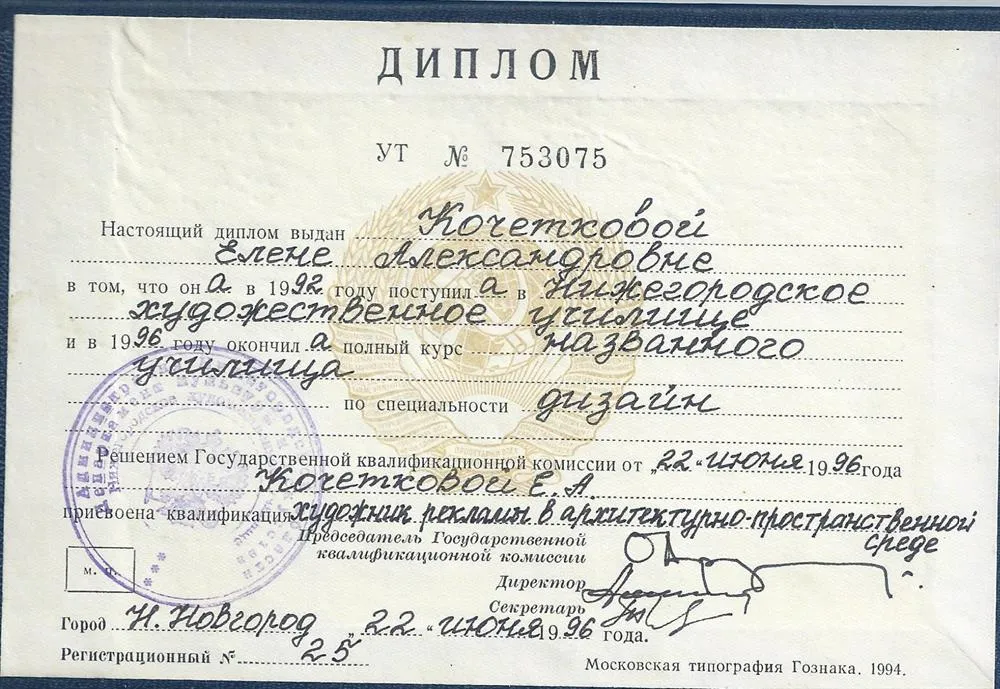 ДИПЛОМ
УТ № 753075
Настоящий диплом выдан Кочетковой
Елене Александровне
в том, что он а в 1992 году поступил а в Нижегородское
художественное училище
и в 1996 году окончил а полный курс названного
училища
по специальности дизайн
Решением Государственной квалификационной комиссии от „22“ июня 1996 года
Кочетковой Е. А.
присвоена квалификация художник рекламы в архитектурно-пространственной
среде
Председатель Государственной
квалификационной комиссии
Директор
Секретарь
м. п.
Город Н. Новгород „22“ июня 1996 года.
Регистрационный № 25
Московская типография Гознака. 1994.